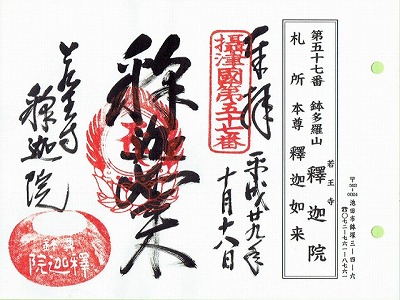 第五十七番 鉢多羅山 若王寺 釋迦院
札所本尊 釋迦如来
〒563-0024 池田市鉢塚三-四-六
☎〇七二-七六一-八七六一
奉拝
攝津國第五十七番
平成廿九年
十月十八日
釋迦如来
若王寺
釋迦院
釋迦院